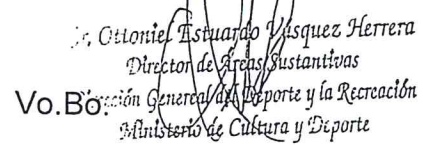 Ottoniel Estuardo Vásquez Herrera
Director de Áreas Sustantivas
Vo.Bo. Dirección General del Deporte y la Recreación
Ministerio de Cultura y Deporte